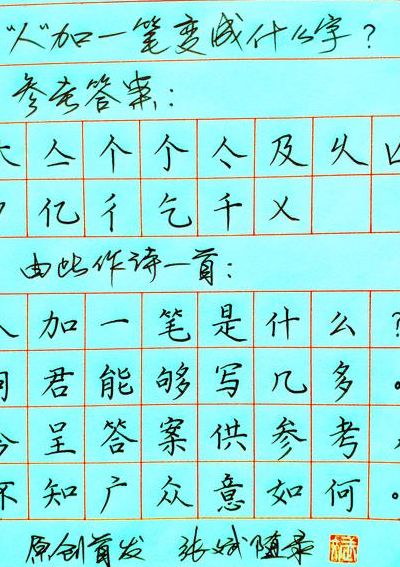 "人"加一笔变成什么字?
参考答案:
大亼个个亽及
亿彳乞千乂
由此作诗一首:
人加一笔是什么?
问君能够写几多。
今呈答案供参考
知广众意如何。
原创首发 张斌随录